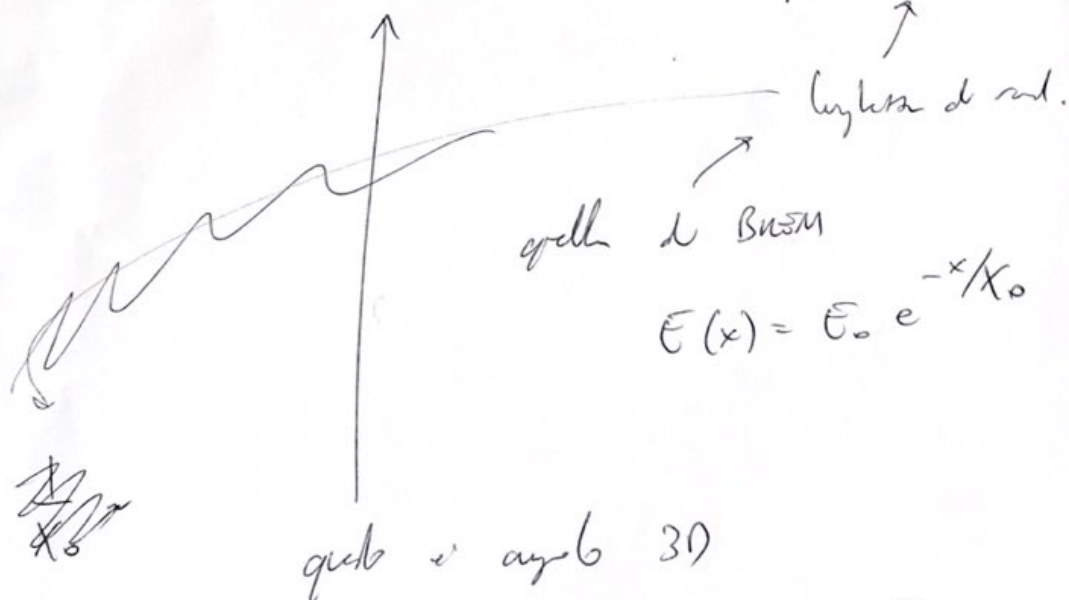 lunghezza di rad.
quella di BREM
E(x) = E₀ e^{-x/X₀}
questo è angolo 3D